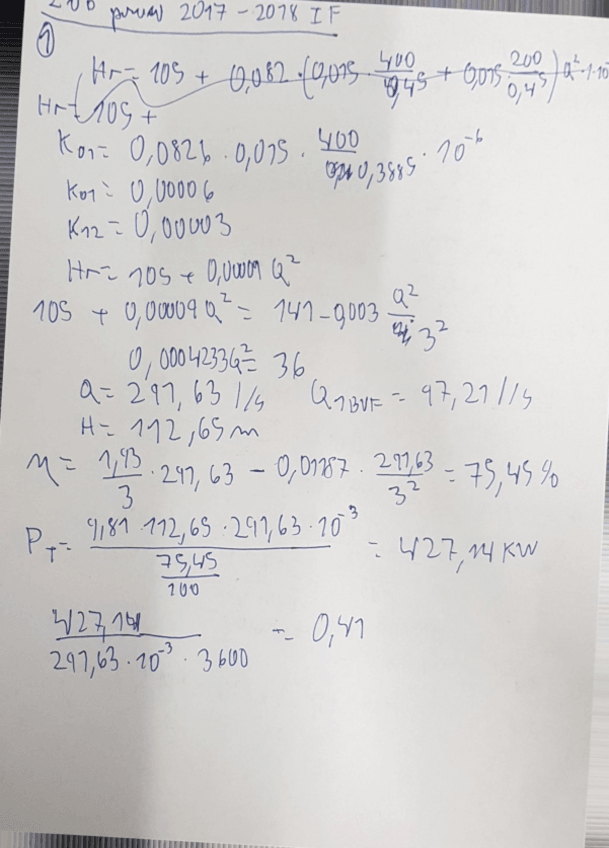 2017 - 2018 I F
①
Hr = 105 + 0,082 · (0,015 · 400/0,45 + 0,015 200/0,45) Q² · 1 · 10
Hr = 105 +
K01 = 0,0826 · 0,015 · 400/0,3885 · 10⁻⁶
K01 = 0,00006
K12 = 0,00003
Hr = 105 + 0,00009 Q²
105 + 0,00009 Q² = 141 - 0,003 Q²/3²
0,0004233Q² = 36
Q = 291,63 l/s Q1BVF = 97,21 l/s
H = 112,65 m
η = 1,93/3 · 291,63 - 0,01187 · 291,63/3² = 75,45 %
PT = 9,81 · 112,65 · 291,63 · 10⁻³ / 75,45/100 = 427,14 KW
427,14 / 291,63 · 10⁻³ · 3600 = 0,41